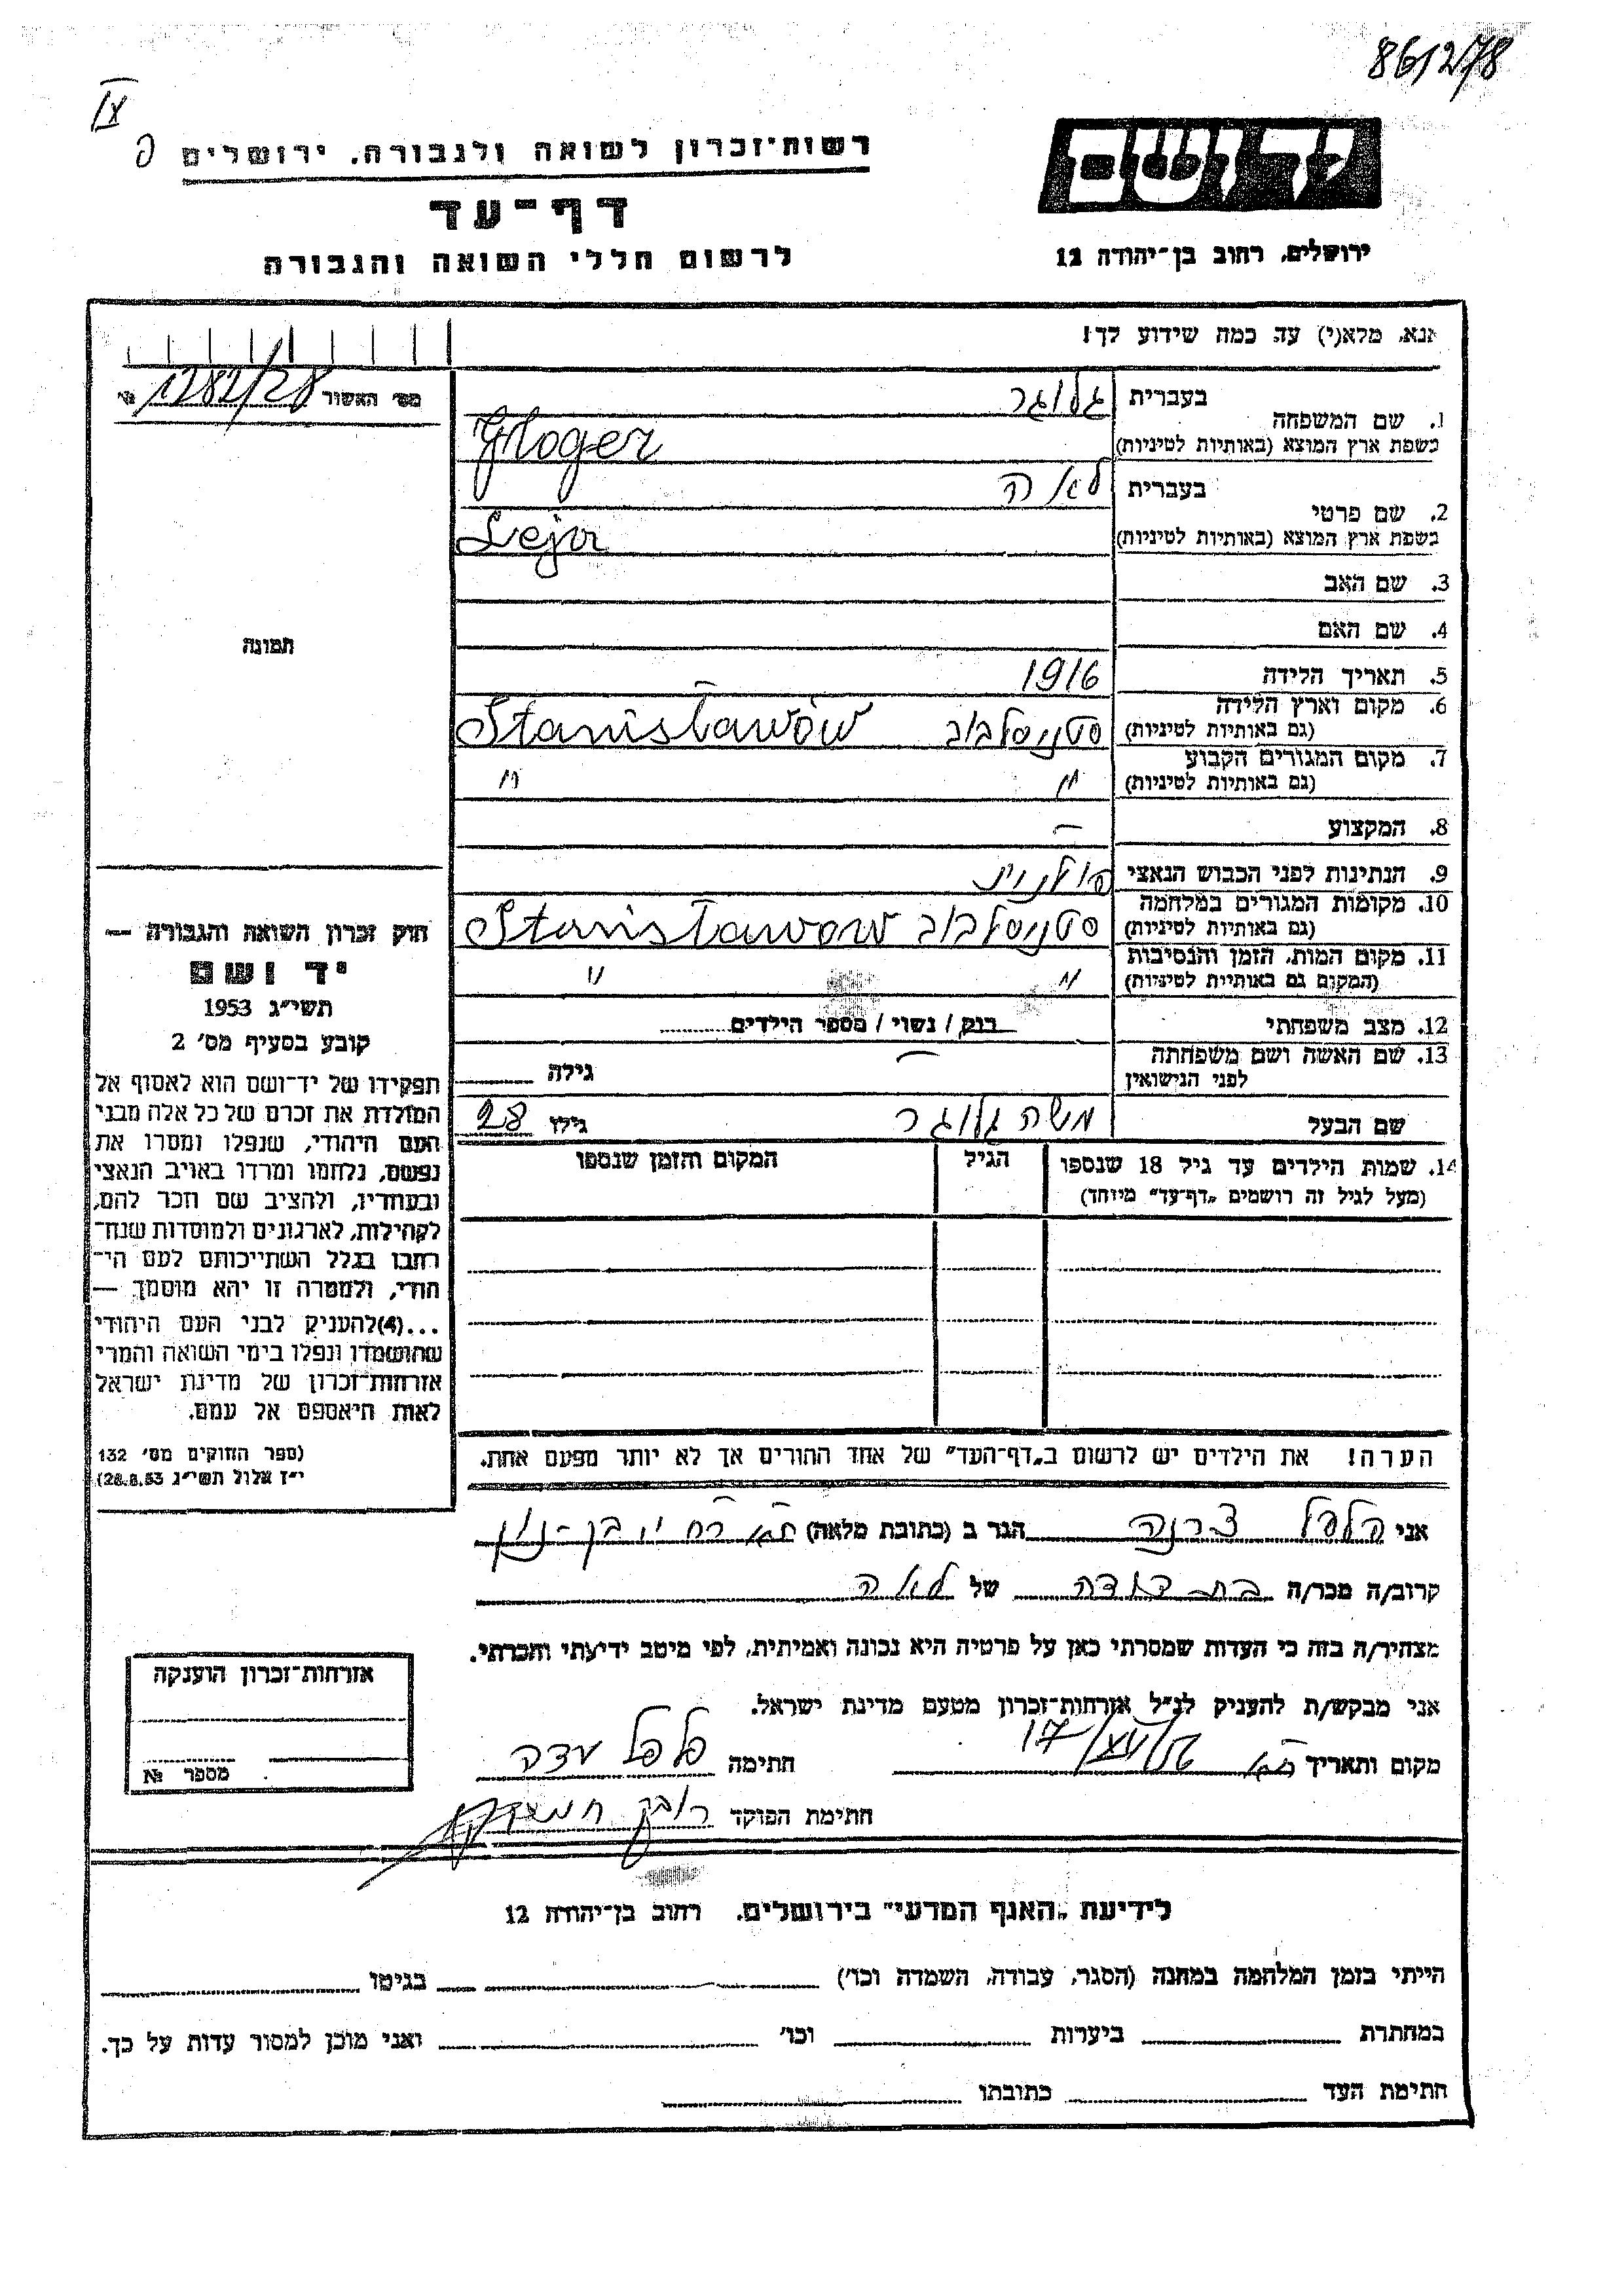 861278
IX
פ
יד ושם
רשות־זכרון לשואה ולגבורה. ירושלים
דף־עד
ירושלים, רחוב בן־יהודה 12
לרשום חללי השואה והגבורה
אנא, מלא(י) עד כמה שידוע לך!
מס׳ האשור 1282/28 №
1. שם המשפחה
בעברית גלוגר
בשפת ארץ המוצא (באותיות לטיניות) Gloger
2. שם פרטי
בעברית לאה
בשפת ארץ המוצא (באותיות לטיניות) Leja
3. שם האב
4. שם האם
תמונה
5. תאריך הלידה 1916
6. מקום וארץ הלידה
(גם באותיות לטיניות) סטניסלבוב Stanisławów
7. מקום המגורים הקבוע
(גם באותיות לטיניות) " "
8. המקצוע –
9. הנתינות לפני הכבוש הנאצי פולנית
10. מקומות המגורים במלחמה
(גם באותיות לטיניות) סטניסלבוב Stanisławow
11. מקום המות, הזמן והנסיבות
(המקום גם באותיות לטיניות) " "
12. מצב משפחתי רווק / נשוי / מספר הילדים
13. שם האשה ושם משפחתה
לפני הנישואין – גילה
שם הבעל משה גלוגר גילו 28
14. שמות הילדים עד גיל 18 שנספו
(מעל לגיל זה רושמים „דף־עד” מיוחד)
הגיל
המקום והזמן שנספו
חוק זכרון השואה והגבורה —
יד ושם
תשי״ג 1953
קובע בסעיף מס׳ 2
תפקידו של יד־ושם הוא לאסוף אל
המולדת את זכרם של כל אלה מבני
העם היהודי, שנפלו ומסרו את
נפשם, נלחמו ומרדו באויב הנאצי
ובעוזריו, ולהציב שם וזכר להם,
לקהילות, לארגונים ולמוסדות שנח־
רבו בגלל השתייכותם לעם הי־
הודי, ולמטרה זו יהא מוסמך —
...(4)להעניק לבני העם היהודי
שהושמדו ונפלו בימי השואה והמרי
אזרחות־זכרון של מדינת ישראל
לאות היאספם אל עמם.
(ספר החוקים מס׳ 132
י״ז אלול תשי״ג 28.8.53)
הערה! את הילדים יש לרשום ב„דף־העד” של אחד ההורים אך לא יותר מפעם אחת.
אני פלפל הגר ב (כתובת מלאה) ת״א
קרוב/ה מכר/ה בת דודה של לאה
מצהיר/ה בזה כי העדות שמסרתי כאן על פרטיה היא נכונה ואמיתית, לפי מיטב ידיעתי והכרתי.
אני מבקש/ת להעניק לנ״ל אזרחות־זכרון מטעם מדינת ישראל.
מקום ותאריך ת״א חתימה פלפל
חתימת הפוקד
אזרחות־זכרון הוענקה
מספר №
לידיעת „האגף המדעי” בירושלים. רחוב בן־יהודה 12
הייתי בזמן המלחמה במחנה (הסגר, עבודה, השמדה וכו׳) בגיטו
במחתרת ביערות וכו׳ ואני מוכן למסור עדות על כך.
חתימת העד כתובתו